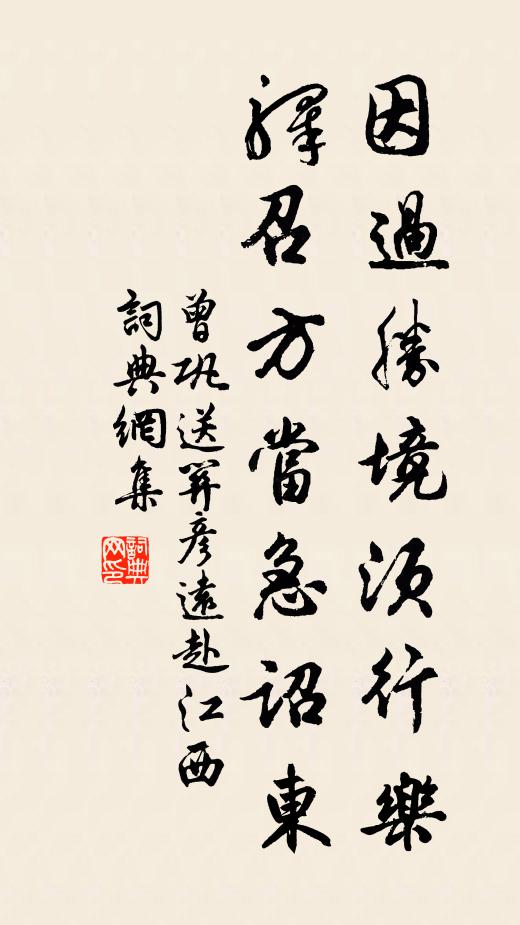 因過勝境須行樂
驛召方當急詔東
曾巩送關彦遠赴江西
詞典網集
詞典网印